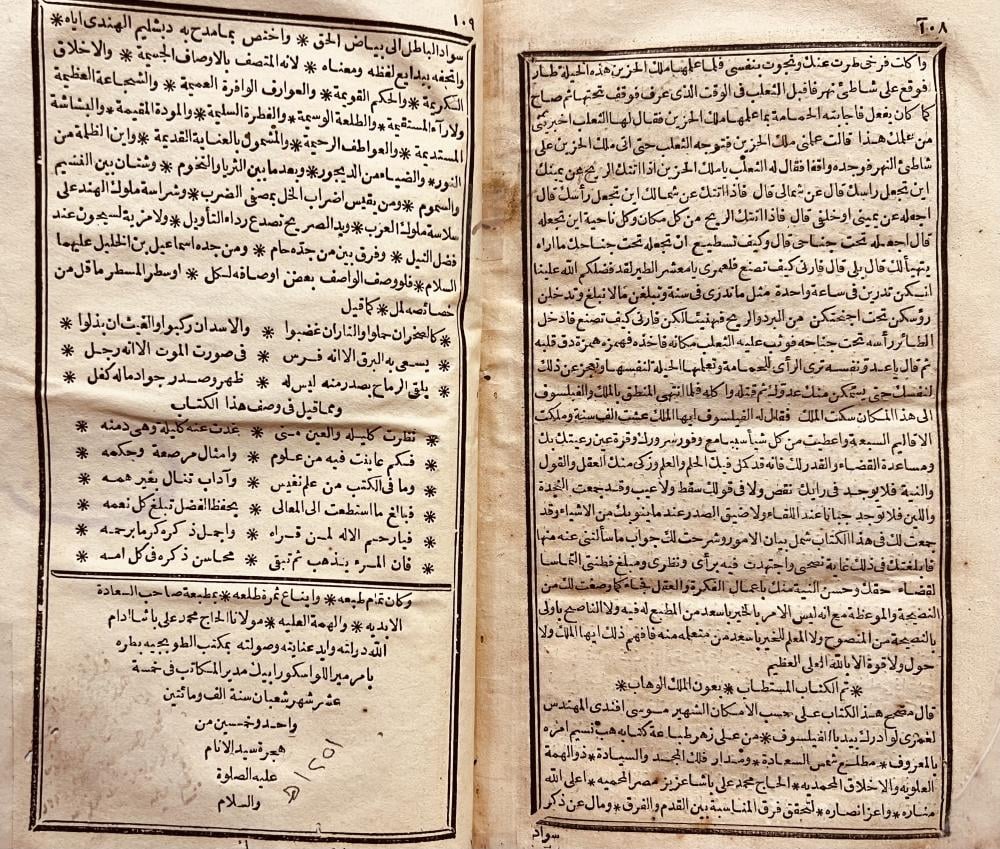 ١٠٨
وا كلت فرخى طرت عنك ونجوت بنفسى فلما علمها ملك الحزين هذه الحيلة طار
فوقع على شاطئ نهر فاقبل الثعلب فى الوقت الذى عرف فوقف تحتها ثم صاح
كما كان يفعل فاجابته الحمامة بما علمها ملك الحزين فقال لها الثعلب اخبرينى
من علمك هذا قالت علمنى ملك الحزين فتوجه الثعلب حتى اتى ملك الحزين على
شاطئ النهر فوجده واقفا فقال له الثعلب يا ملك الحزين اذا اتتك الريح عن يمينك
اين تجعل راسك قال عن شمالى قال فاذا اتتك عن شمالك اين تجعل رأسك قال
اجعله عن يمينى او خلفى قال فاذا اتتك الريح من كل مكان وكل ناحية اين تجعله
قال اجعله تحت جناحى قال وكيف تستطيع ان تجعله تحت جناحك ما اراه
يتهيأ لك قال بلى قال فارنى كيف تصنع فلعمرى يا معشر الطير لقد فضلكم الله علينا
انكن تدرين فى ساعة واحدة مثل ما ندرى فى سنة وتبلغن مالا نبلغ وتدخلن
رؤسكن تحت اجنحتكن من البرد والريح فهنيئا لكن فارنى كيف تصنع فادخل
الطائر رأسه تحت جناحه فوثب عليه الثعلب مكانه فاخذه فهمزه همزة دق قلبه
ثم قال يا عدو نفسه ترى الرأى للحمامة وتعلمها الحيلة لنفسها وتعجز عن ذلك
لنفسك حتى يتمكن منك عدوك ثم قتله واكله فلما انتهى المنطق بالملك والفيلسوف
الى هذا المكان سكت الملك فقال له الفيلسوف ايها الملك عشت الف سنة وملكت
الاقاليم السبعة واعطيت من كل شئ سببا مع وفور سرورك وقرة عين رعيتك بك
ومساعدة القضاء والقدر لك فانه قد كمل فيك الحلم والعلم وزكى منك العقل والقول
والنية فلا يوجد فى رايك نقص ولا فى قولك سقط ولا عيب وقد جمعت النجدة
واللين فلا توجد جبانا عند اللقاء ولا ضيق الصدر عند ما ينوبك من الاشياء وقد
جمعت لك فى هذا الكتاب شمل بيان الامور وشرحت لك جواب ما سألتنى عنه منها
فابلغتك فى ذلك غاية نصحى واجتهدت فيه برأى ونظرى ومبلغ فطنتى التماسا
لقضاء حقك وحسن النية منك باعمال الفكرة والعقل فجاء كما وصفت لك من
النصيحة والموعظة مع انه ليس الامر بالخير باسعد من المطيع له فيه ولا الناصح باولى
بالنصيحة من المنصوح ولا المعلم للخير باسعد من متعلمه منه فافهم ذلك ايها الملك ولا
حول ولا قوة الا بالله العلى العظيم
* تم الكتاب المستطاب * بعون الملك الوهاب *
قال مصحح هذا الكتاب على حسب الامكان الشهير موسى افندى المهندس
لعمرى لو ادرك بيدبا الفيلسوف * من على زهر طباعة كتابه هب نسيم امره
بالمعروف * مطلع شمس السعادة * ومدار فلك المجد والسيادة * ذو الهمة
العلويه والاخلاق المحمديه * الحاج محمد على باشا عزيز مصر المحميه * اعلى الله
مناره * واعز انصاره * لتحقق فرق المناسبة بين القدم والفرق * ومال عن ذكر
سواد
١٠٩
سواد الباطل الى بياض الحق * واختص بما مدح به دبشليم الهندى اياه *
واتحفه ببدايع لفظه ومعناه * لانه المتصف بالاوصاف الجسيمة * والاخلاق
الكريمة * والحكم القويمة * والعوارف الوافرة العميمة * والشجاعة العظيمة
ولا رآء المستقيمة * والطلعة الوسيمة * والفطرة السليمة * والمودة المقيمة * والبشاشة
المستديمة * والعواطف الرحيمة * والمشمول بالعناية القديمة * واين الظلمة من
النور * والضياء من الديجور * وبعد ما بين الثريا والتخوم * وشتان بين النسيم
والسموم * ومن يقيس اضراب الخل بمصفى الضرب * وشراسة ملوك الهند على
سلاسة ملوك العرب * ويد الصريح تصدع رداء التأويل * ولا مزية لسيحون عند
فضل النيل * وفرق بين من جده حام * ومن جده اسماعيل بن الخليل عليهما
السلام * فلو وصف الواصف بعض اوصافه لكل * او سطر المسطر ما قل من
خصائصه لمل * كما قيل
* كالبحران حملوا والناران غضبوا * والاسد ان ركبوا والغيث ان بذلوا *
* يسعى به البرق الا انه فرس * فى صورت الموت الا انه رجل *
* يلقى الرماح بصدر منه ليس له * ظهر وصدر جواد ماله كفل *
ومما قيل فى وصف هذا الكتاب
* نظرت كليله والعين منى * غدت عنه كليله وهى دمنه *
* فكم عاينت فيه من علوم * وامثال مرصعة وحكمه *
* وما فى الكتب من علم نفيس * وآداب تنال بغير همه *
* فبالغ ما استطعت الى المعالى * بحفظ الفضل تبلغ كل نعمه *
* فيا رحم الاله لمن قراه * واجمل ذكره كرما برحمه *
* فان المرء يذهب ثم تبقى * محاسن ذكره فى كل امه *
وكان تمام طبعه * وايناع ثمرة طلعه * بمطبعة صاحب السعادة
الابديه * والهمة العليه * مولانا الحاج محمد على باشا ادام
الله دولته وايد عنايته وصولته بمكتب الطوبجيه بطره
بامر مير اللوا سكورا بيك مدير المكاتب فى خمسة
عشر شهر شعبان سنة الف ومائتين
واحد وخمسين من
هجرة سيد الانام
عليه الصلوة
والسلام
١٢٥١